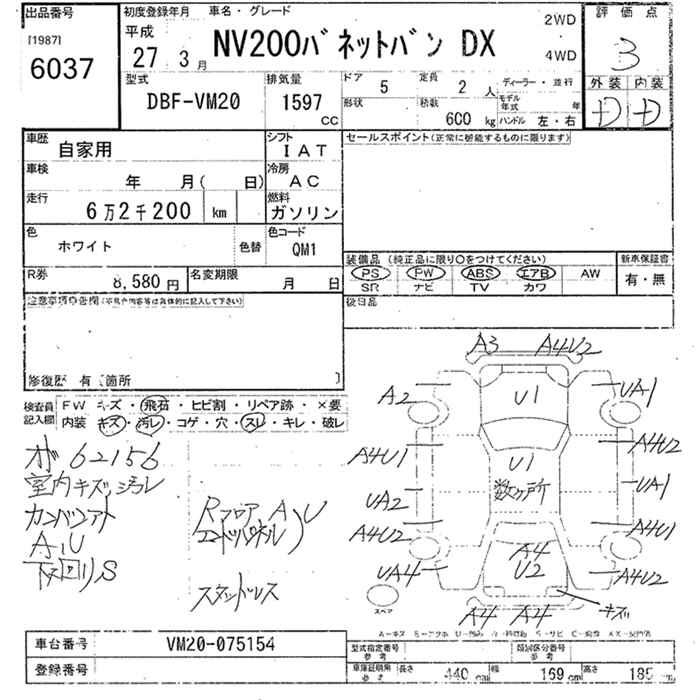 出品番号
[1987]
6037
初度登録年月 車名・グレード
平成
27 3月
NV200バネットバン DX
2WD
4WD
評価点
3
外装 内装
D D
型式
DBF-VM20
排気量
1597 CC
ドア 5
定員 2人
ディーラー・並行
形状
積載 600 kg
モデル年式 年
ハンドル 左・右
車歴
自家用
シフト
IAT
車検
年 月( 日)
冷房
AC
走行
6万2千200 km
燃料
ガソリン
色
ホワイト
色替
色コード
QM1
R券
8,580円
名変期限
月 日
セールスポイント(正常に機能するものに限ります)
装備品(純正品に限り○をつけてください)
PS PW ABS エアB AW
SR ナビ TV カワ
新車保証書
有・無
後日品
注意事項申告欄(不具合内容等は具体的に記入して下さい)
修復歴 有〔箇所 〕
検査員記入欄
FW キズ・飛石・ヒビ割・リペア跡・×要
内装 キズ・汚レ・コゲ・穴・スレ・キレ・破レ
62156
室内キズ、汚レ
A,U
下回りS
Rフロア A,U
エンドパネル
A3 A4U2
A2 U1 UA1
A4U1 U1 A4U2
数ヶ所
UA2 UA1
A4U2 A4 A4U1
UA4 U2 A4U2
スペア
A4 A4 キズ
車台番号
VM20-075154
登録番号
型式指定番号
参考
類別区分番号
参考
車庫証明用
参考
長さ 440 cm 幅 169 cm 高さ 185 cm